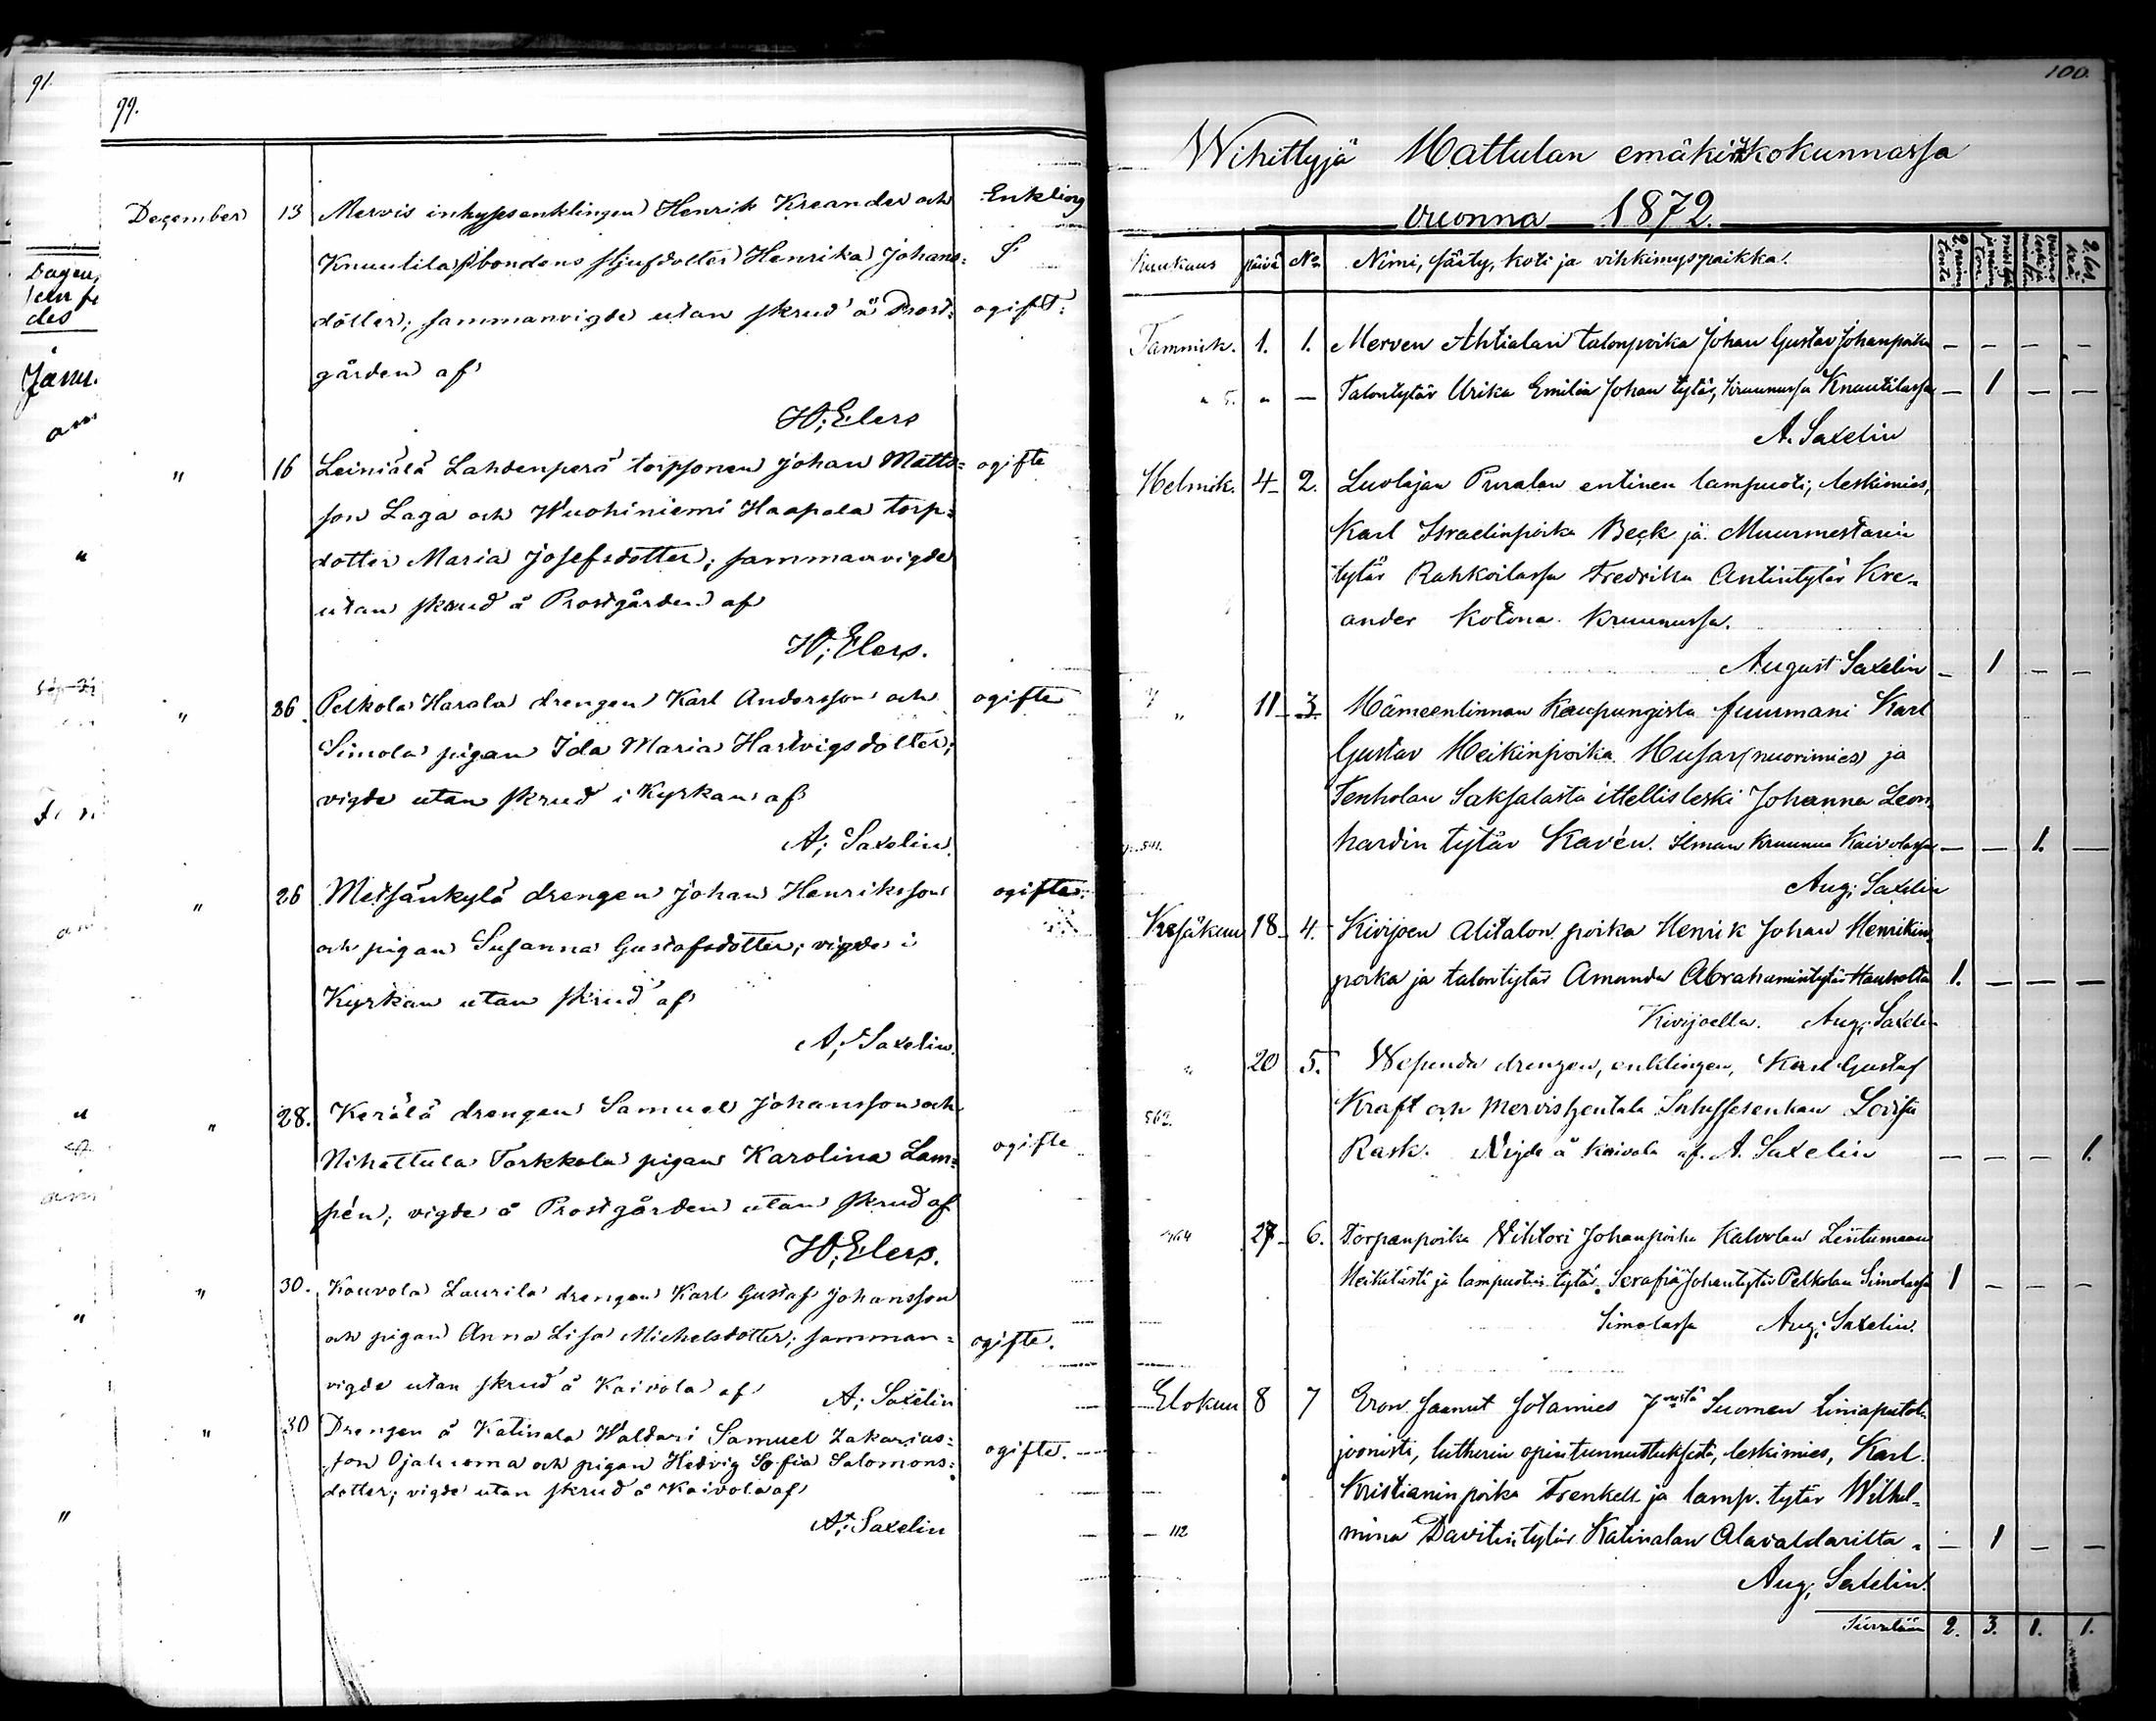 91.
99.
December 13 Mervis inhysesenklingen Henrik Kreander och Enkling
Knuutila bondens styfdotter Henrika Johans= &
dotter; sammanvigde utan skrud å Prost= ogift.
gården af
H; Elers
" 16 Leiniälä Lahdenperä torpsonen Johan Matts= ogifte
son Laga och Wuohiniemi Haapala torp=
dotter Maria Josefsdotter; sammanvigde
utan skrud å Prostgården af
H; Elers.
" 26. Pelkola Harala drengen Karl Andersson och ogifte
Simola pigan Ida Maria Hartvigsdotter;
vigde utan skrud i Kyrkan af
A; Saxelin.
" 26 Metsänkylä drengen Johan Henriksson ogifte.
och pigan Susanna Gustafsdotter; vigde i
Kyrkan utan skrud af
A; Saxelin.
" 28. Kerälä drengen Samuel Johansson och
Nihattula Torkkola pigan Karolina Lam= ogifte
pén; vigde å Prostgården utan skrud af
H; Elers.
" 30. Kouvola Laurila drengen Karl Gustaf Johansson
och pigan Anna Lisa Michelsdotter; samman= ogifte.
vigde utan skrud å Kaivola af A; Saxelin
" 30 Drengen å Katinala Waldari Samuel Zakarias=
son Ojaluoma och pigan Hedvig Sofia Salomons= ogifte.
dotter; vigde utan skrud å Kaivola af
A; Saxelin
Dagen,
des
Janu.
100.
Wihittyjä Hattulan emäkirkkokunnassa
vuonna 1872.
Kuukaus päivä No Nimi, sääty, koti ja vihkimyspaikka.
Tammik. 1. 1. Merven Ahtialan talonpoika Johan Gustav Johanpoika — — — —
" " — Talontytär Urika Emilia Johan tytär, kruunussa Knuutilassa — 1 — —
A. Saxelin
Helmik. 4 2. Luolajan Puralan entinen lampuoti, leskimies,
Karl Israelinpoika Beck ja Muurmestarin
tytär Rahkoilassa Fredrika Antintytär Kre=
ander kotona kruunussa.
August Saxelin — 1 — —
" 11 3 Hämeenlinnan Kaupungista fuurmani Karl
Gustav Heikinpoika Husar (nuorimies) ja
Tenholan Saksalasta ittellisleski Johanna Leon
hardin tytär Kavén. Ilman kruunua Kaivolassa — — 1. —
541.
Aug; Saxelin
Kesäkuu 18 4. Kivijoen Alitalon poika Henrik Johan Henrikin
poika ja talontytär Amanda Abrahamintytär Hauholta 1. — — —
Kivijoella. Aug; Saxelin
" 20 5. Wesunda drengen, enklingen, Karl Gustaf
562. Kraft och Mervis Inhysesenkan Lovisa
Rask. Vigde å Kaivola af A. Saxelin — — — 1.
27 6. Torpanpoika Vihtori Johanpoika Kalvolan Lintumaan
Heikilästä ja lampuotin tytär Serafia Johantytär Pelkolan Simolassa 1 — — —
Simolassa Aug; Saxelin.
Elokuu 8 7 Eron saanut sotamies 7nestä Suomen liniapatal=
joonista, lutherin opin tunnustuksesta, leskimies, Karl
Kristianinpoika Frenkell ja lamp. tytär Wilhel=
112 mina Davitin tytär Katinalan Alavaldarilta. — 1 — —
Aug; Saxelin.
2. 3. 1. 1.